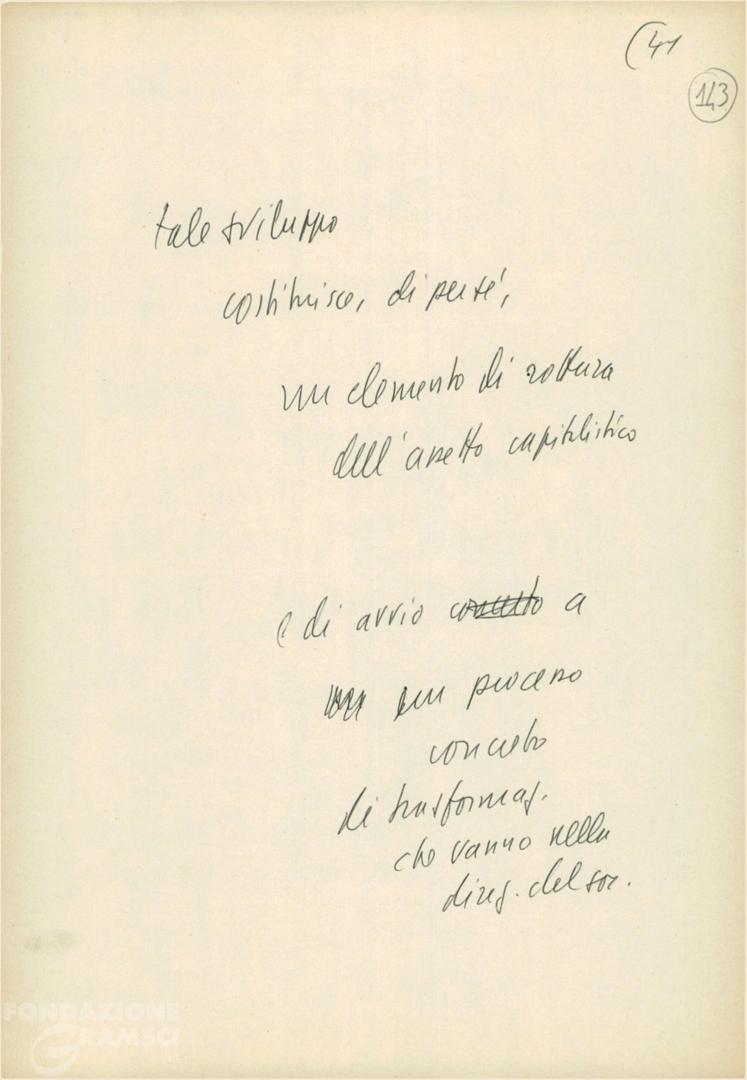 (41
143
tale sviluppo
costituisce, di per sé,
un elemento di rottura
dell'assetto capitalistico
e di avvio concreto a
un processo
concreto
di trasformaz.
che vanno nella
direz. del soc.
FONDAZIONE
GRAMSCI